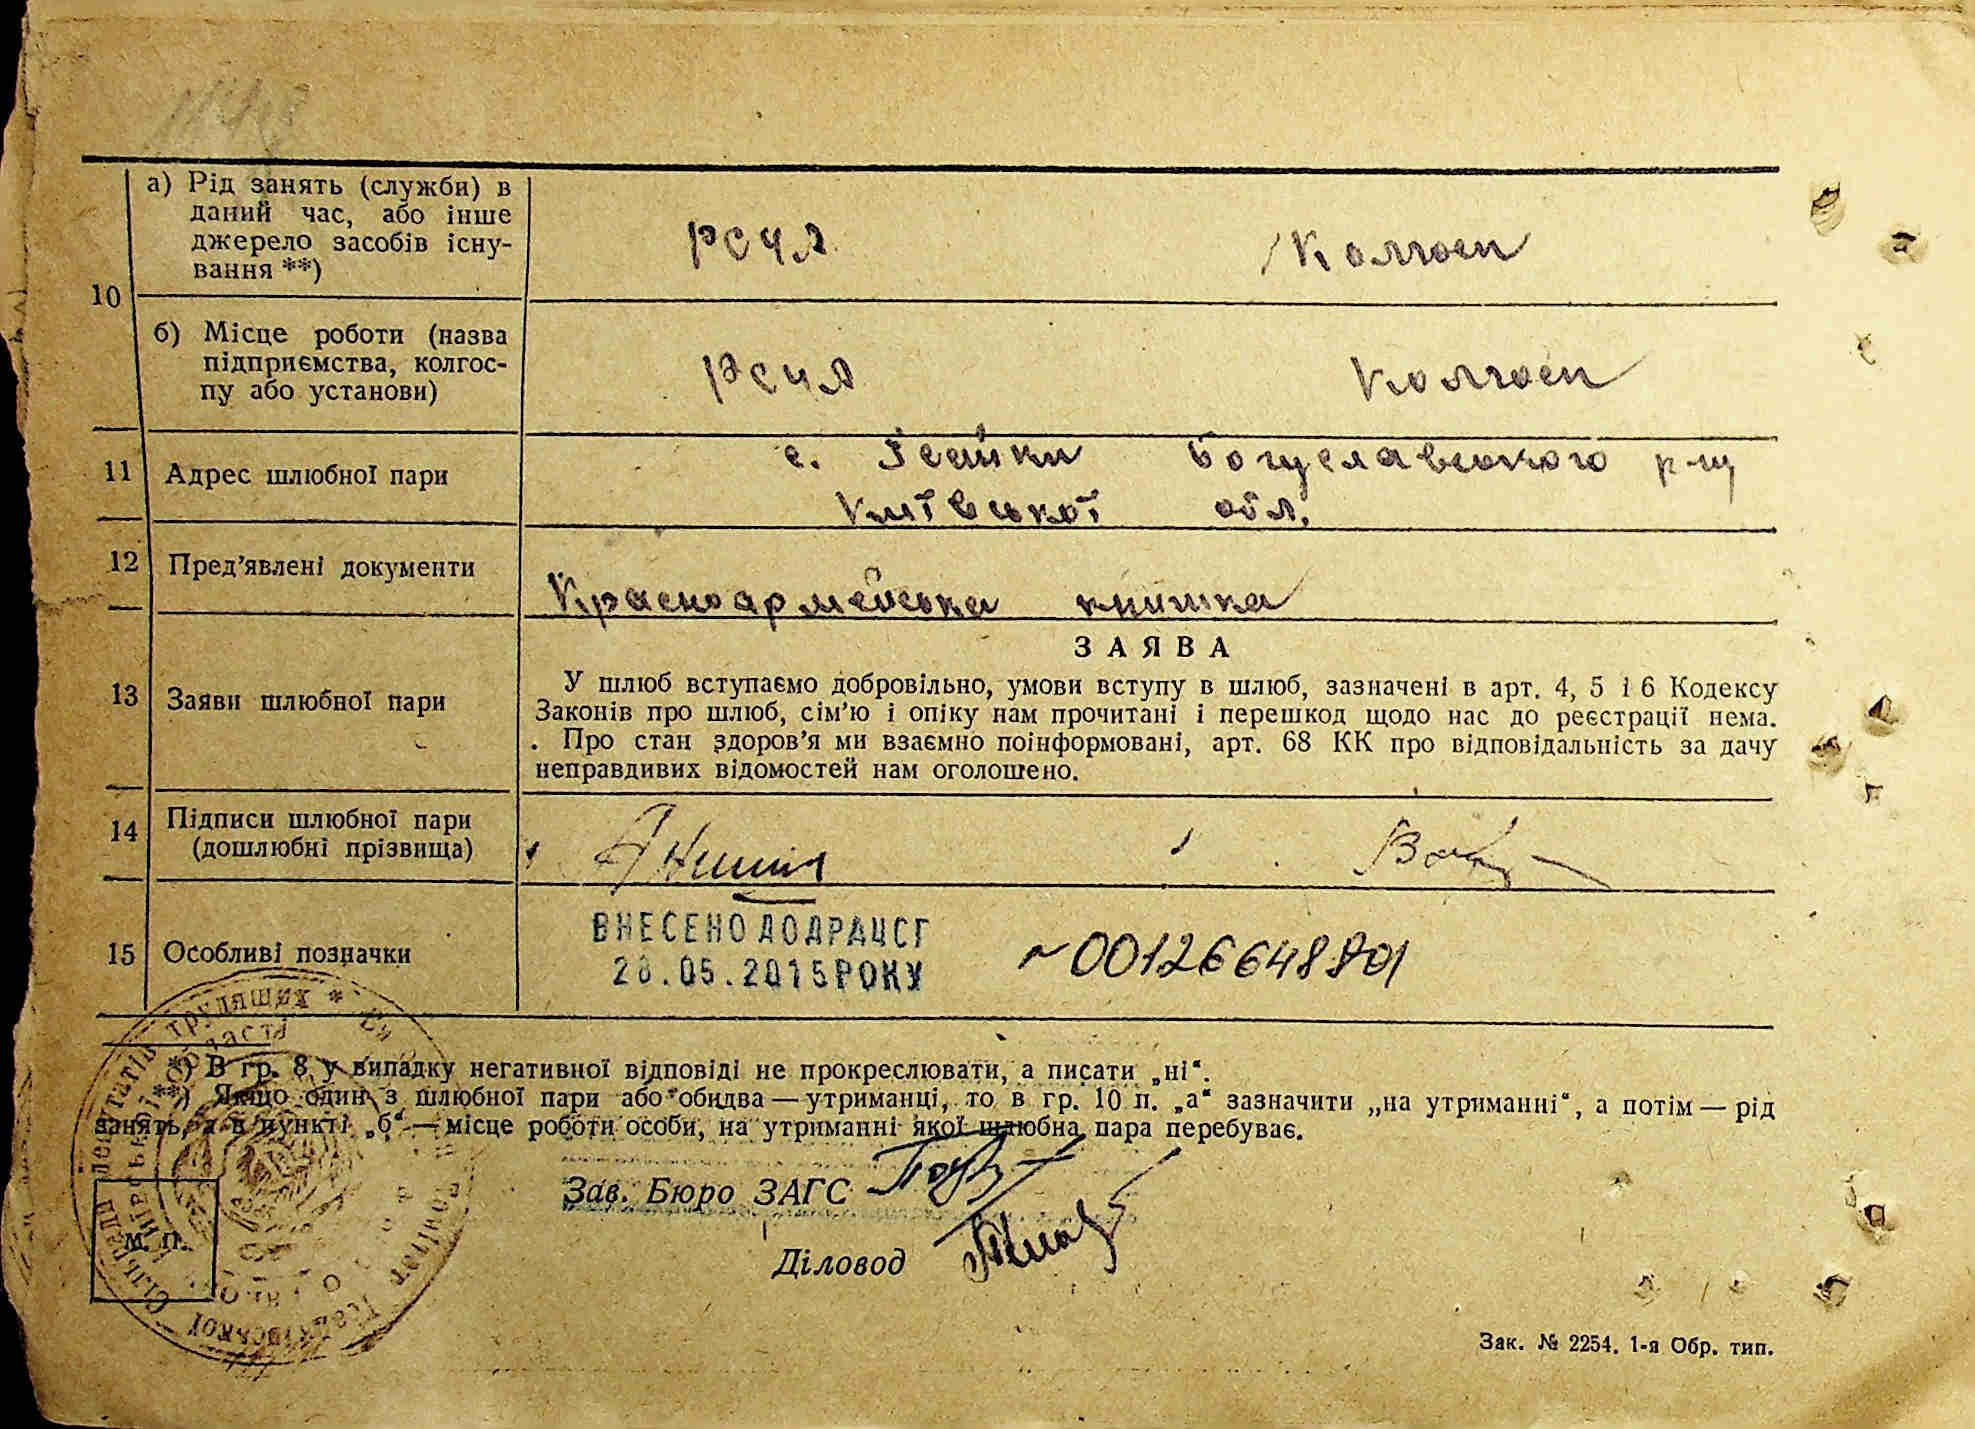 10
а) Рід занять (служби) в
даний час, або інше
джерело засобів існу-
вання **)
РСЧА
Колгосп
б) Місце роботи (назва
підприємства, колгос-
пу або установи)
РСЧА
Колгосп
11 Адрес шлюбної пари
с. Ісайки Богуславського р-ну
Київської обл.
12 Пред’явлені документи
Красноармейська книжка
13 Заяви шлюбної пари
ЗАЯВА
У шлюб вступаємо добровільно, умови вступу в шлюб, зазначені в арт. 4, 5 і 6 Кодексу
Законів про шлюб, сім’ю і опіку нам прочитані і перешкод щодо нас до реєстрації нема.
Про стан здоров’я ми взаємно поінформовані, арт. 68 КК про відповідальність за дачу
неправдивих відомостей нам оголошено.
14 Підписи шлюбної пари
(дошлюбні прізвища)
15 Особливі позначки
ВНЕСЕНО ДО ДРАЦСГ
28.05.2015 РОКУ
*) В гр. 8 у випадку негативної відповіді не прокреслювати, а писати „ні“.
**) Якщо один з шлюбної пари або обидва — утриманці, то в гр. 10 п. „а“ зазначити „на утриманні“, а потім — рід
занять, а в пункті „б“ — місце роботи особи, на утриманні якої шлюбна пара перебуває.
Зав. Бюро ЗАГС
Діловод
М. П.
депутатів трудящих *
області
Зак. № 2254. 1-я Обр. тип.